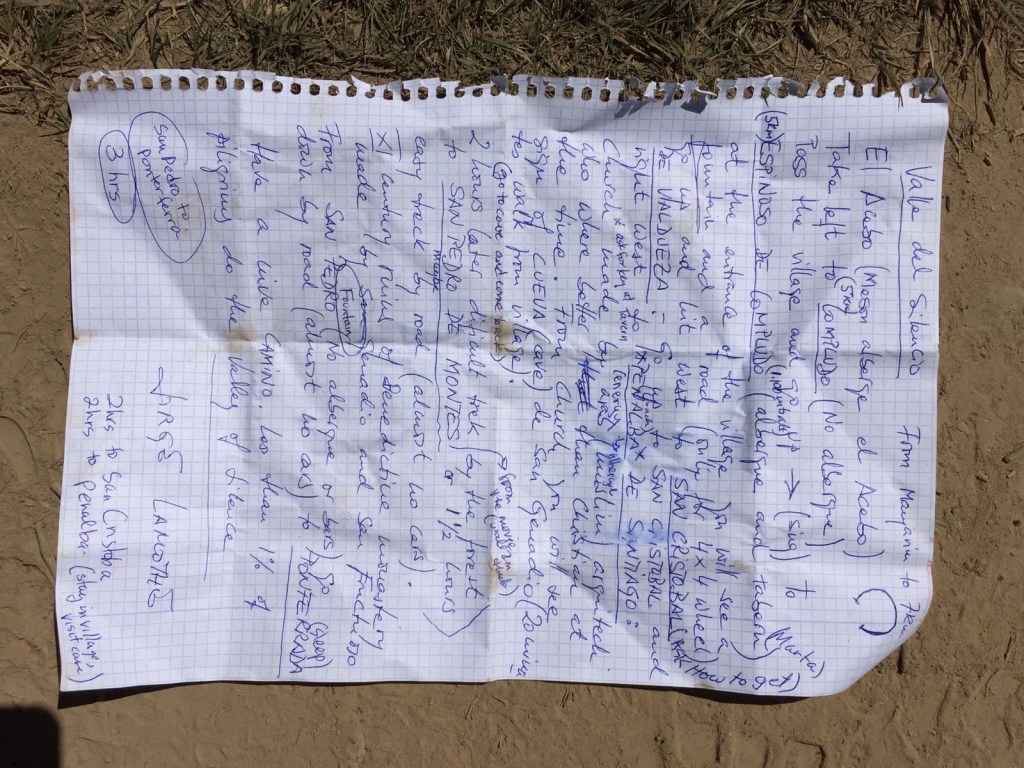 Valle del Silencio From Manjarin to
El Acebo (Moson alberge el Acebo)
Take left to COMPLUDO (No albergue)
(5km)
Pass the village and go → (sing) to
(5km) ESPINOSO DE COMPLUDO (albergue and
at the entrance of the village you will see a
fountain and a road (only for 4x4 wheel)
go up and hit west to SAN CRISTOBAL (Ask How to
DE VALDUEZA - So to SAN CRISTOBAL and
right west to PEÑALBA DE SANTIAGO:
church made by (muslim) arquitech
who where better then Christian at
the time. From Church you will see
sign of CUEVA (cave) de San Genadio (20 minu
tes walk from village).
(go to cave and come back)
2 hours later dificult trek (by the forest)
to SAN PEDRO DE MONTES or 1 1/2 hours
easy track by road (almost no cars).
XI century ruins of Benedictine monastery
made by San Genadio and San Fructuoso
(Fountain)
From SAN PEDRO (No albergue or bars) go
down by road (almost no cars) to PONFERRADA
Have a nice CAMINO. Less than 1% of
piligrims do the Valley of Silence
JORGE LAMOTHE
San Pedro to
Ponferrada
3 hrs
2hrs to San Cristoba
2hrs to Penalba (stay in village,
visit cave)